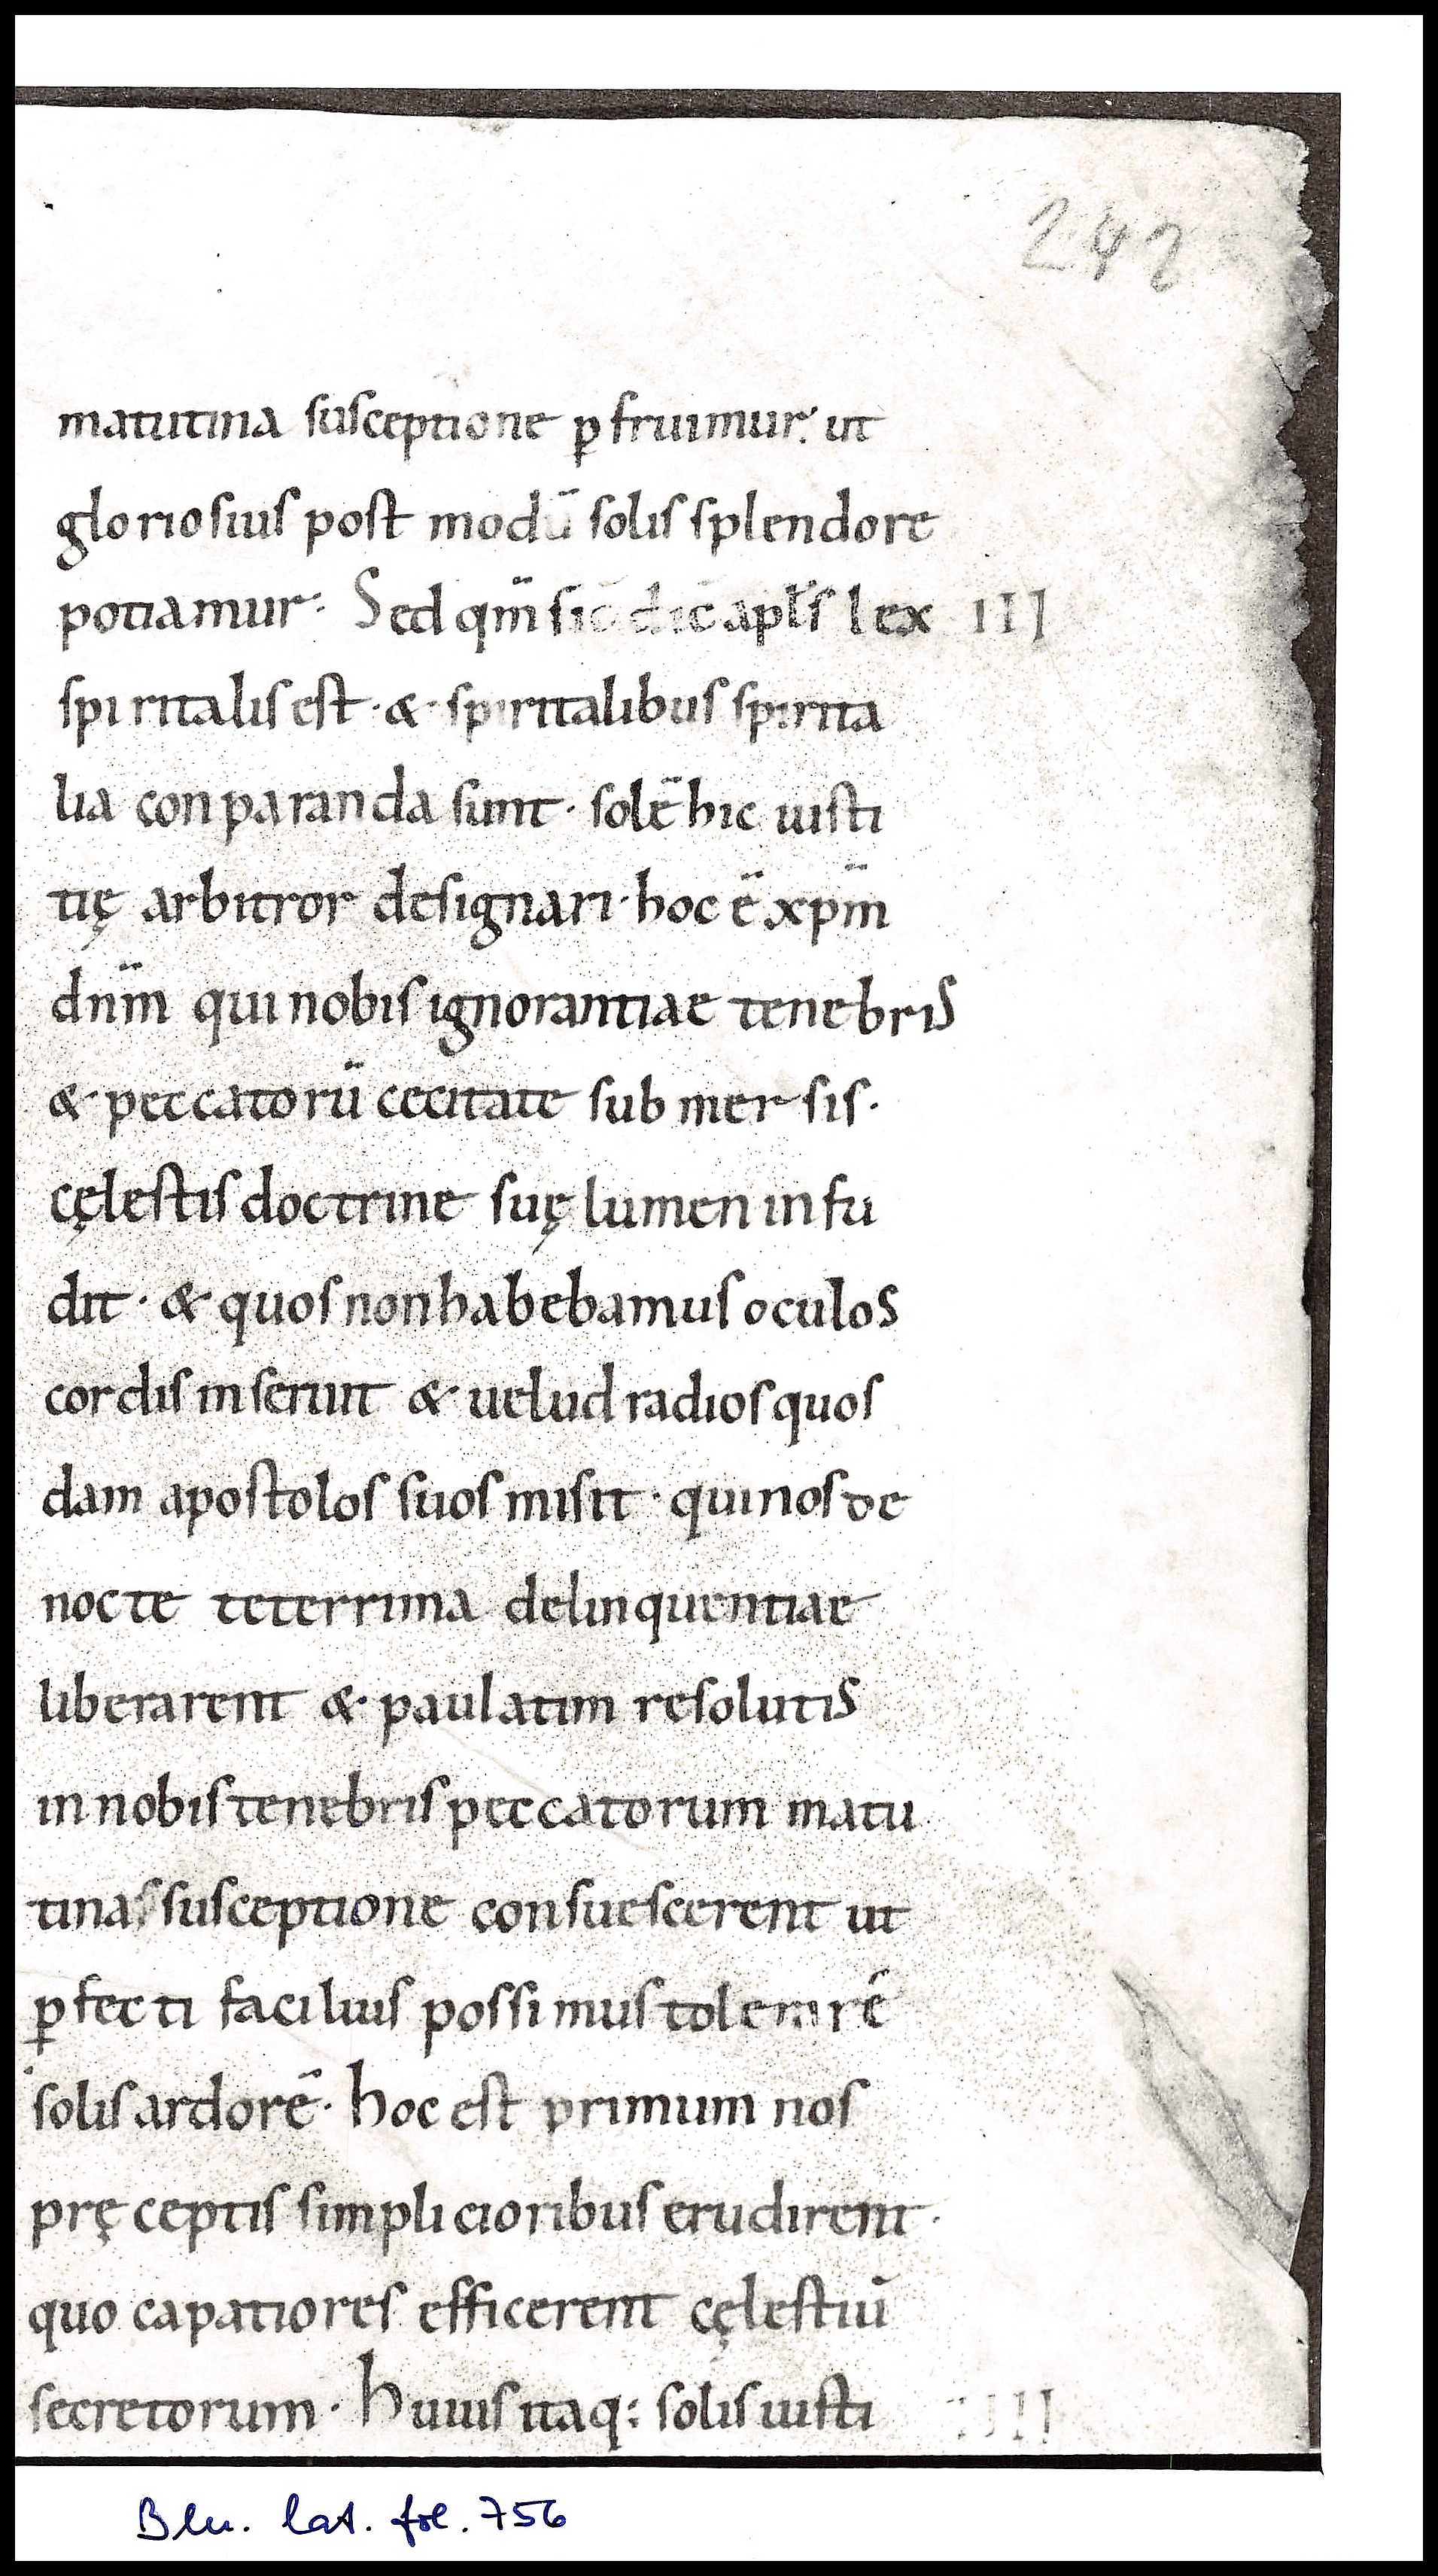 242
matutina susceptione ꝑfruimur. ut
gloriosius post modū solis splendore
potiamur. Sed qm̄ sic dic apl̄s lex III
spiritalis est · & · spiritalibus spirita
lia conparanda sunt · solē hic iusti
tię arbitror designari · hoc ē xpm̄
dnm̄ qui nobis ignorantiae tenebris
& peccatorū cecitate submersis ·
cęlestis doctrine suę lumen infu
dit · & quos non habebamus oculos
cordis inseruit & uelud radios quos
dam apostolos suos misit · qui nos de
nocte teterrima delinquentiae
liberarent & paulatim resolutis
in nobis tenebris peccatorum matu
tinas susceptione consuescerent ut
ꝑfecti facilius possimus tolerarē
solis ardorē · hoc est primum nos
pręceptis simplicioribus erudirent ·
quo capatiores efficerent cęlestiū
secretorum · Huius itaq: solis iusti IIII
Bln. lat. fol. 756